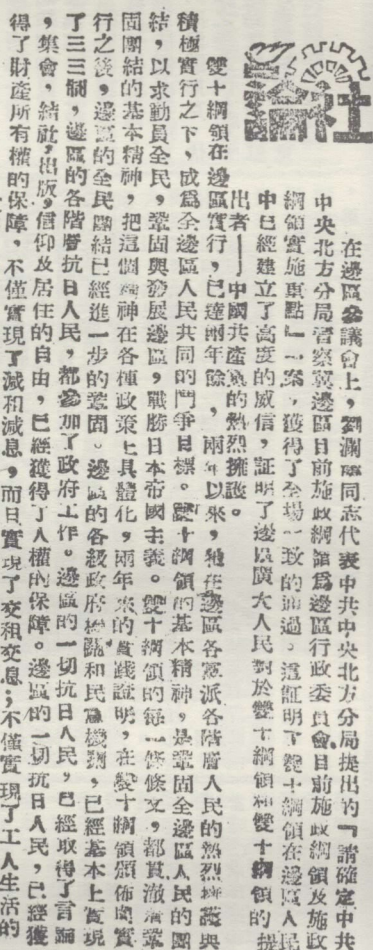 社論
在邊區參議會上，劉瀾濤同志代表中共中央北方分局提出的『請確定中共
中央北方分局晉察冀邊區目前施政綱領爲邊區行政委員會目前施政綱領及施政
綱領實施重點』一案，獲得了全場一致的通過。這証明了雙十綱領在邊區人民
中已經建立了高度的威信，証明了邊區廣大人民對於雙十綱領和雙十綱領的提
出者——中國共產黨的熱烈擁護。
雙十綱領在邊區實行，已達兩年餘，兩年以來，牠在邊區各黨派各階層人民的熱烈擁護與
積極實行之下，成爲全邊區人民共同的鬥爭目標。雙十綱領的基本精神，是鞏固全邊區人民的團
結，以求動員全民，鞏固與發展邊區，戰勝日本帝國主義。雙十綱領的每一條條文，都貫澈着鞏
固團結的基本精神，把這個精神在各種政策上具體化，兩年來的實踐證明，在雙十綱領頒佈與實
行之後，邊區的全民團結已經進一步的鞏固。邊區的各級政府機關和民意機關，已經基本上實現
了三三制，邊區的各階層抗日人民，都參加了政府工作。邊區的一切抗日人民，已經取得了言論
，集會，結社，出版，信仰及居住的自由，已經獲得了人權的保障。邊區的一切抗日人民，已經獲
得了財產所有權的保障，不僅實現了減租減息，而且實現了交租交息；不僅實現了工人生活的